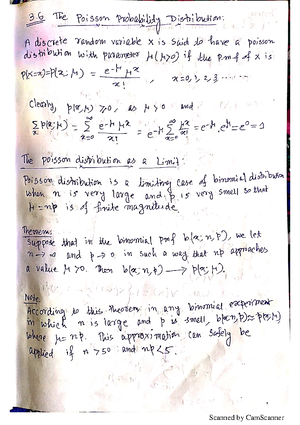 3.6 The Poisson Probability Distribution:
A discrete random variable X is said to have a poisson
distribution with parameter μ (μ>0) if the pmf of X is
P(X=x)=P(x; μ) = e^-μ μ^x / x! , x=0,1,2,3 .....
Clearly, p(x; μ) ≥0, as μ>0 and
∑x p(x; μ) = ∑x=0^∞ e^-μ μ^x / x! = e^-μ ∑x=0^∞ μ^x / x! = e^-μ. e^μ = e^0 = 1
The poisson distribution as a Limit:
Poisson distribution is a limiting case of binomial distribution
when n is very large and p is very small so that
μ = np is of finite magnitude.
Theorem:
Suppose that in the binomial pmf b(x; n, p), we let
n → ∞ and p → 0 in such a way that np approaches
a value μ>0. Then b(x; n, p) → p(x; μ).
Note:
According to this theorem in any binomial experiment
in which n is large and p is small, b(x; n, p) ≈ p(x; μ)
where μ = np. This approximation can safely be
applied if n >50 and np<5.
Scanned by CamScanner